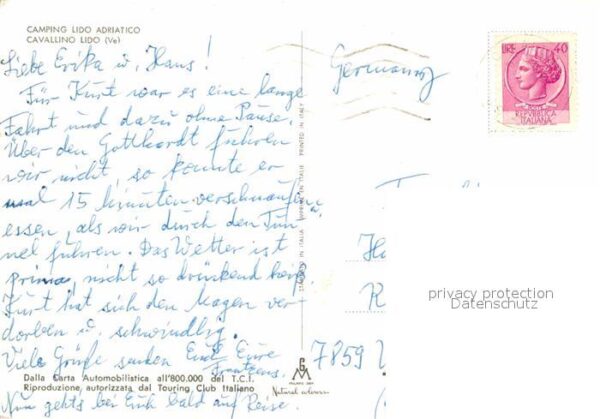 CAMPING LIDO ADRIATICO
CAVALLINO LIDO (Ve)
Liebe Erika u. Hans!
Für Kurt war es eine lange
Fahrt und dazu ohne Pause.
Über den Gotthardt fuhren
wir nicht, so konnte er
mal 15 Minuten verschnaufen u.
essen, als wir durch den Tun
nel fuhren. Das Wetter ist
prima, nicht so drückend heiß.
Kurt hat sich den Magen ver-
dorben u. schwindlig.
Viele Grüße senden Euch Eure
Nun geht's bei Euch bald auf Reise.
Dalla Carta Automobilistica all'800.000 del T.C.I.
Riproduzione autorizzata dal Touring Club Italiano
PRINTED IN ITALY
Germany
LIRE 40
REPVBBLICA
ITALIANA
7859
privacy protection
Datenschutz